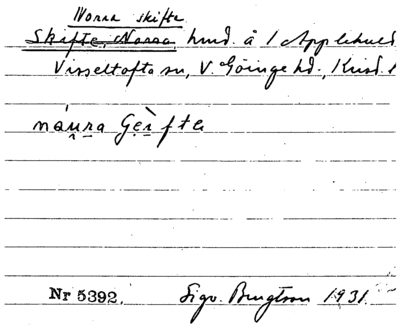 Norra skifte
Skifte, Norra, hmd. å 1 Applehult
Visseltofta sn, V. Göinge hd., Krisd. l
náṷra ʃè̱fte
Nr 5392. Sigv. Bengtson 1931